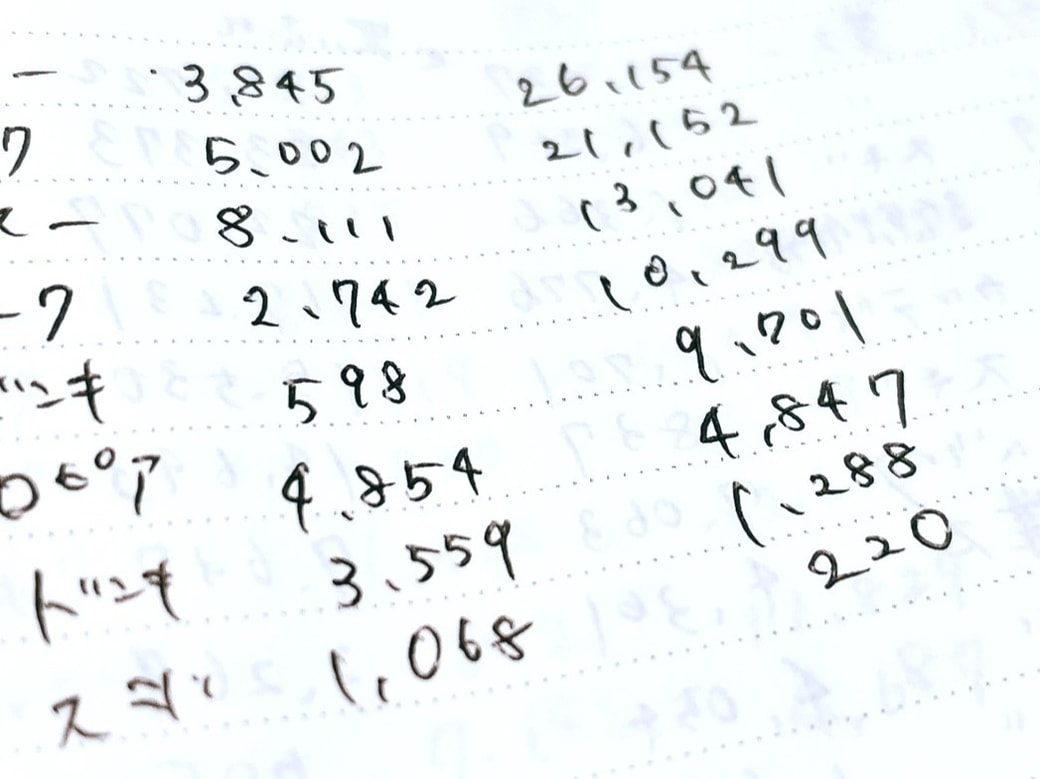 ー 3,845 26,154
ク 5,002 21,152
スー 8,111 13,041
ーク 2,742 10,299
ドンキ 598 9,701
ロピア 4,854 4,847
ドンキ 3,559 1,288
1,068 220